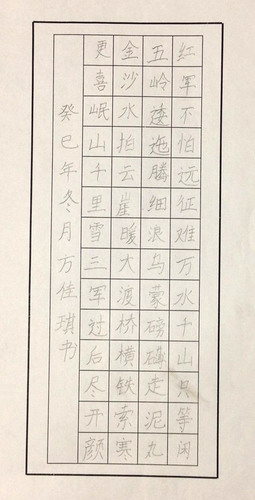 红军不怕远征难万水千山只等闲
五岭逶迤腾细浪乌蒙磅礴走泥丸
金沙水拍云崖暖大渡桥横铁索寒
更喜岷山千里雪三军过后尽开颜
癸巳年冬月方佳琪书